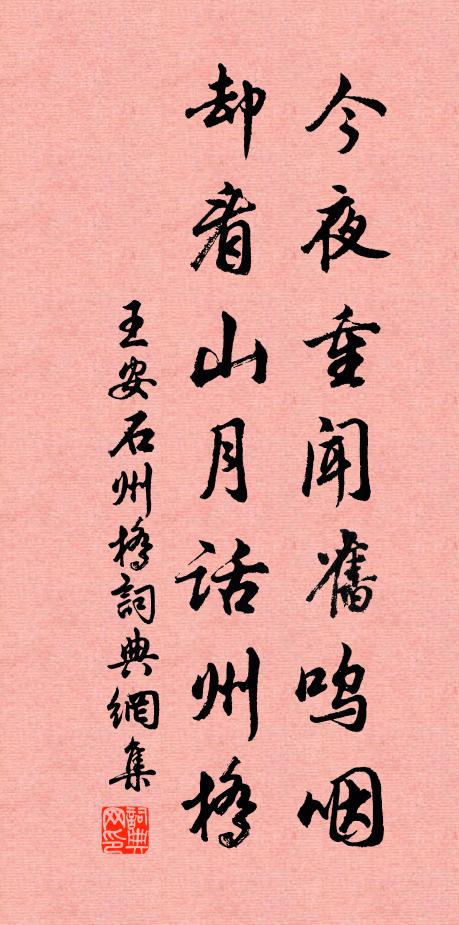 今夜重闻舊呜咽
却看山月话州橋
王安石州橋詞典網集
詞典网印